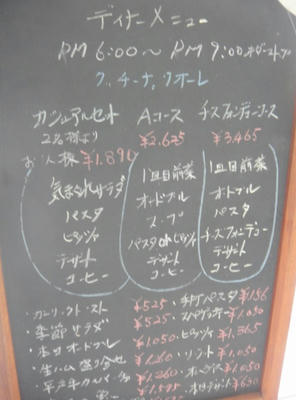 ディナーメニュー
PM 6:00〜PM 9:00 オーダーストップ
クッチーナ クオーレ
カジュアルセット Aコース チーズフォンデューコース
2名様より ¥2,625 ¥3,465
お一人様 ¥1,890
気まぐれサラダ
パスタ
ピッツァ
デザート
コーヒー
1皿目前菜
オードブル
スープ
パスタ or ピッツァ
デザート
コーヒー
1皿目前菜
オードブル
パスタ
チーズフォンデュー
デザート
コーヒー
・ガーリックトースト ¥525
・季節サラダ ¥525
・本日オードブル ¥1,050
・生ハム盛り合せ ¥1,260
¥1,260
¥1,575
・手打パスタ ¥1,156
¥1,050
・ピッツァ ¥1,365
・リゾット ¥1,050
¥1,050
¥630